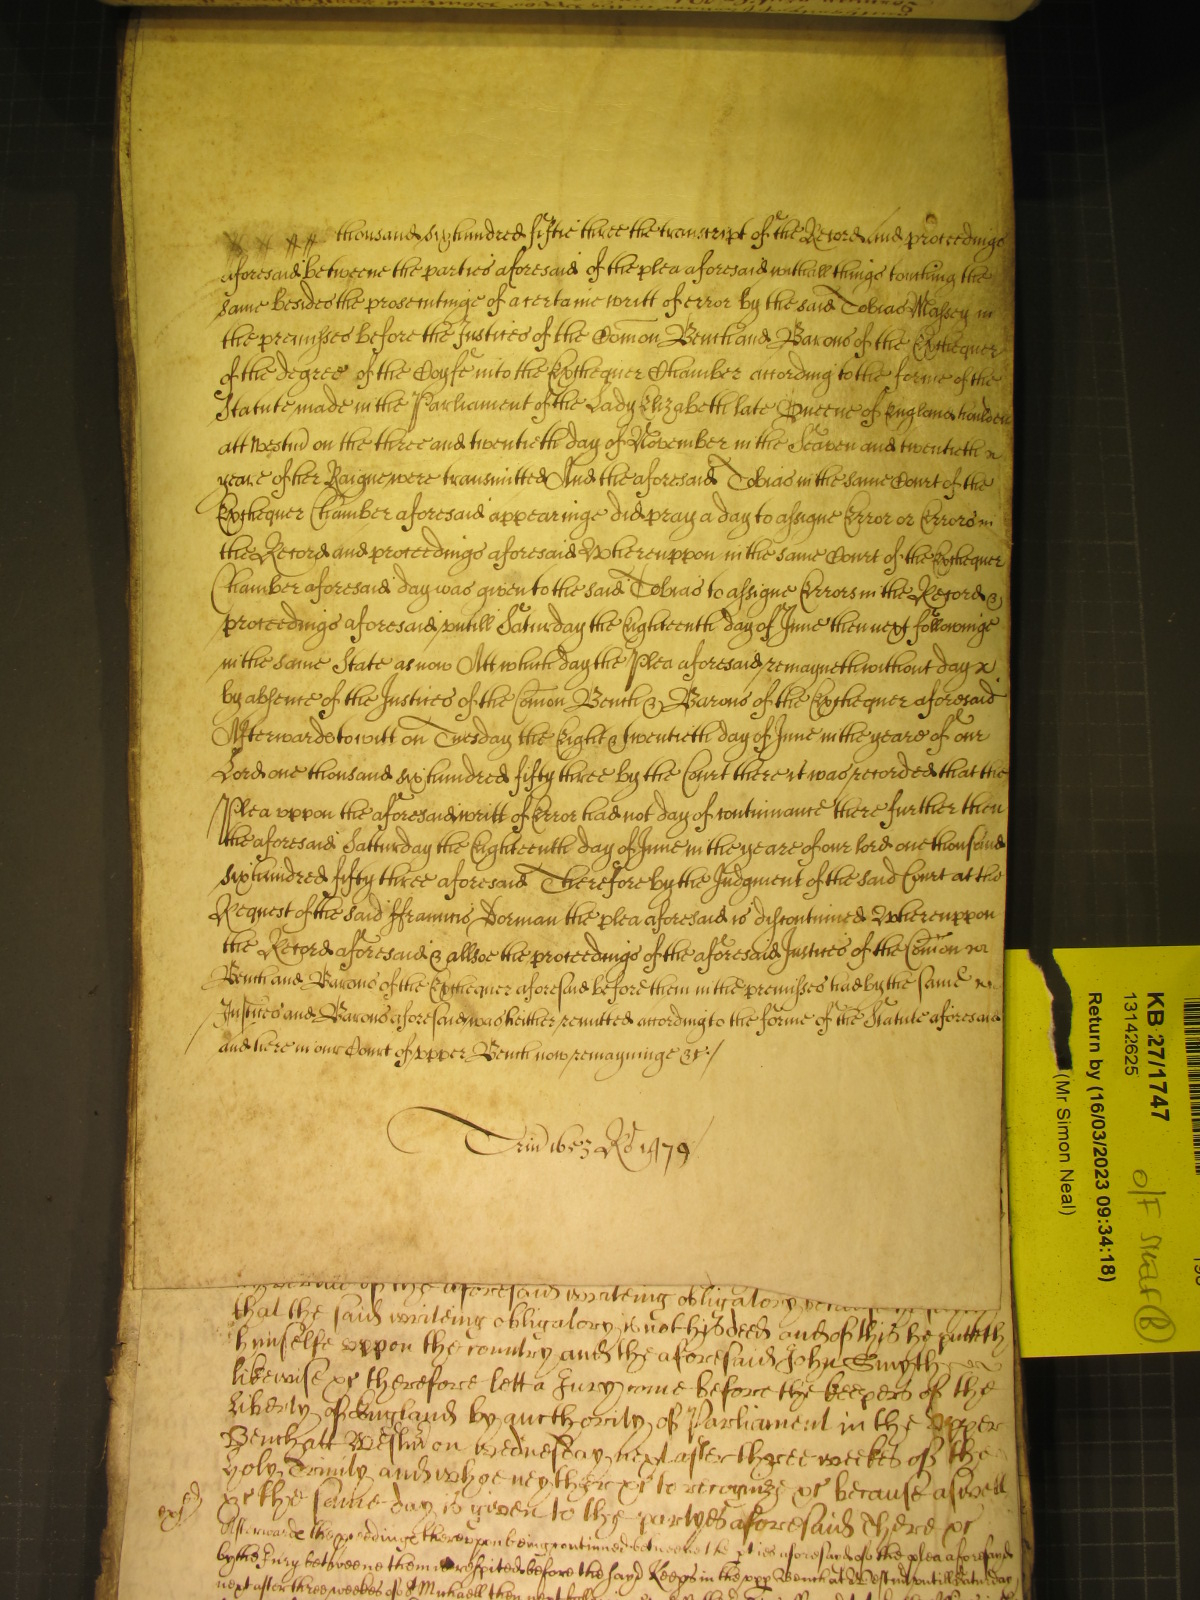 thousand sixhundred fiftie three the transcript of the Record and proceedings
aforesaid betweene the parties aforesaid of the plea aforesaid withall things touching the
same besides the prosecutinge of a certaine writt of error by the said Tobias Massey in
the premisses before the Justices of the Comon Bench and Barons of the Exchequer
of the degree of the Coyfe into the Exchequer Chamber according to the forme of the
Statute made in the Parliament of the Lady Elizabeth late Queene of England houlden
att Westm on the three and twentieth day of November in the Seaven and twentieth
yeare of her Raigne were transmitted And the aforesaid Tobias in the same Court of the
Exchequer Chamber aforesaid appearinge did pray a day to assigne Error or Errors in
the Record and proceedings aforesaid Whereuppon in the same Court of the Exchequer
Chamber aforesaid day was given to the said Tobias to assigne Errors in the Record &
proceedings aforesaid untill Saturday the Eighteenth day of June then next followinge
in the same State as now Att which day the Plea aforesaid remayneth without day
by absence of the Justices of the Comon Bench & Barons of the Exchequer aforesaid
Afterwards to witt on Tuesday the Eight & twentieth day of June in the yeare of our
Lord one thousand sixhundred fifty three by the Court there it was recorded that the
Plea uppon the aforesaid writt of Error had not day of continuance there further then
the aforesaid Satturday the Eighteenth day of June in the yeare of our lord one thousand
sixhundred fifty three aforesaid Therefore by the Judgment of the said Court at the
Request of the said ffrancis Dorman the plea aforesaid is discontinued Whereuppon
the Record aforesaid & allsoe the proceedings of the aforesaid Justices of the Comon
Bench and Barons of the Exchequer aforesaid before them in the premisses had by the same
Justices and Barons aforesaid was hether remitted according to the forme of the Statute aforesaid
and here in our Court of upper Bench now remayninge &c/
Trin 1653 Ro 1479
of the aforesaid writeing obligatory
that the said writeing obligatory is not his deed and of this he putteth
himselfe uppon the country and the aforesaid John Smyth
likewise &c therefore lett a Jury come before the keepers of the
Liberty of England by aucthority of Parliament in the Upper
Bench att Westm on wednesday next after three weekes of the
holy Trinity and whoe neyther &c to recognize &c because aswell
&c the same day is given to the partyes aforesaid there &c
Afterwards the proceedings thereupon being continued betweene the pties aforesaid of the plea aforesaid
by the Jury betweene them respited before the sayd Keeps in the upp Bench at Westm untill Saturday
next after three weekes of St Michaell then next
KB 27/1747
13142625
Return by (16/03/2023 09:34:18)
(Mr Simon Neal)